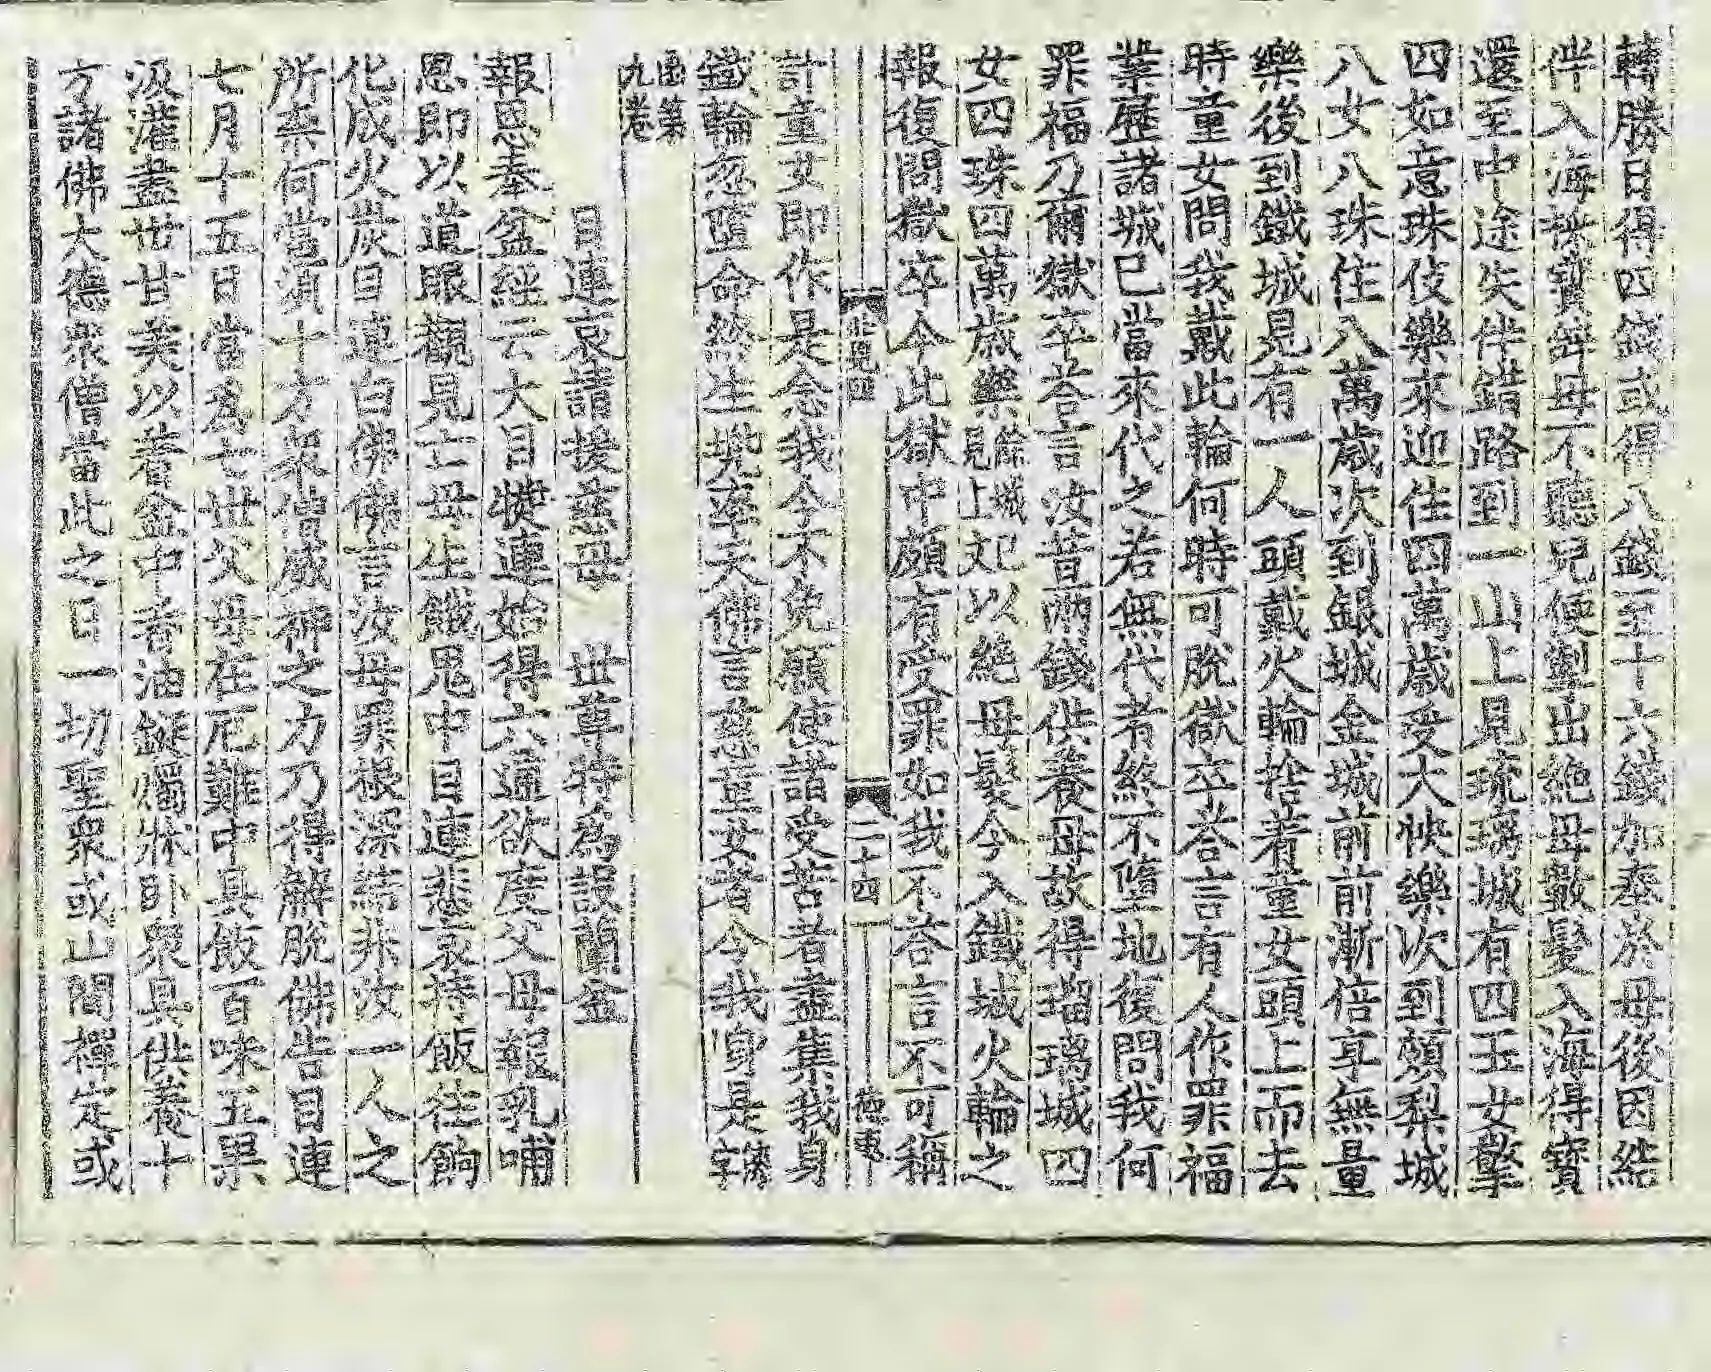 轉勝日得四錢或得八錢至十六錢加奉於母後因結
伴入海採寶辝母不聽兒便掣出絶母數髮入海得寶
還至中途失伴錯路到一山上見琉璃城有四玉女擎
四如意珠伎樂來迎住四萬歲受大快樂次到頗梨城
八女八珠住八萬歲次到銀城金城前前漸倍享無量
樂後到鐵城見有一人頭戴火輪捨著童女頭上而去
時童女問我戴此輪何時可脫獄卒荅言有人作罪福
業歷諸城已當來代之若無代者終不墮地復問我何
罪福乃爾獄卒荅言汝昔兩錢供養母故得瑠璃城四
女四珠四萬歲樂餘城見上文已以絶母髮今入鐵城火輪之
報復問獄卒今此獄中頗有受罪如我不荅言不可稱
非見四 二十四
計童女即作是念我今不免願使諸受苦者盡集我身
鐵輪忽墮命終生兜率天佛言慈童女者今我身是
函第九卷
目連哀請援慈母 世尊特爲設蘭盆
報恩奉盆經云大目犍連始得六通欲度父母報乳哺
恩即以道眼觀見亡母生餓鬼中目連悲哀持飯往餉
化成火炭目連白佛佛言汝母罪根深結非汝一人之
所柰何當須十方衆僧威神之力乃得解脫佛告目連
七月十五日當爲七世父母在厄難中具飯百味五果
汲灌盡世甘美以著盆中香油鋌燭牀卧衆具供養十
方諸佛大德衆僧當此之日一切聖衆或山間禪定或